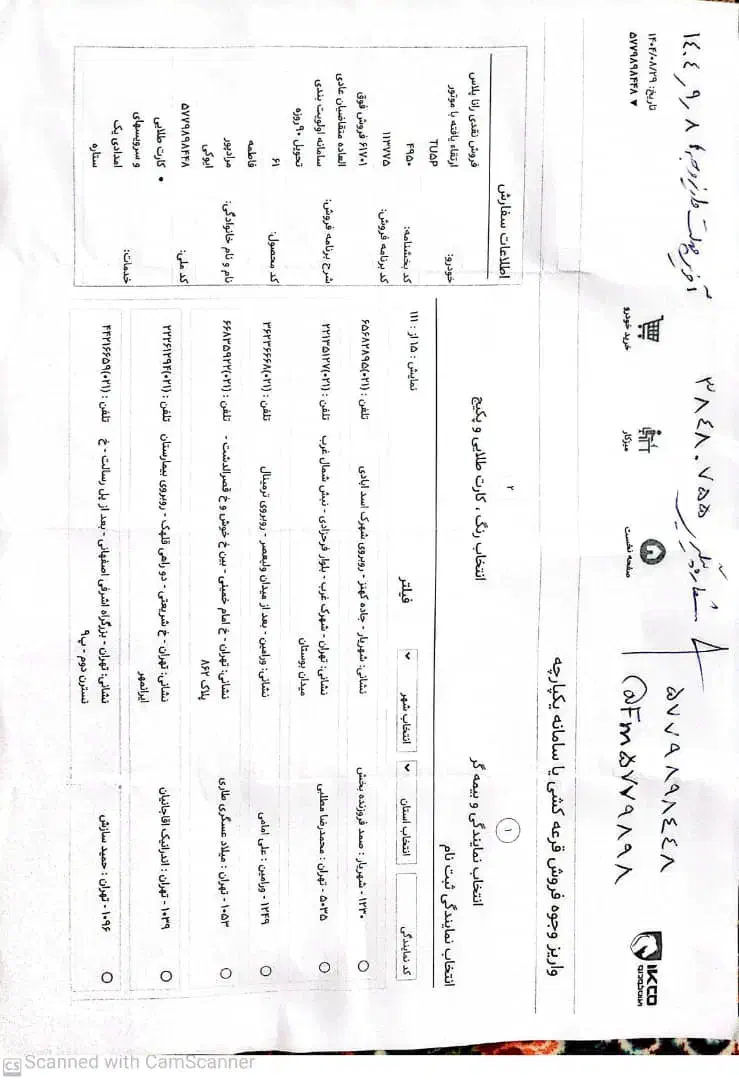 IKCO
ایران خودرو
صفحه نخست
میزکار
خرید خودرو
تاریخ: ۱۴۰۴/۰۸/۲۹
۵۷۷۹۸۹۸۴۴۸ ▼
۵۷۷۹۸۹۸۴۴۸
@Fm۵۷۷۹۸۹۸
۳۸۴۸۰۷۵۵
۱۴۰۴٫۹٫۸
آخرین مهلت
واریز وجوه فروش قرعه کشی یا سامانه یکپارچه
۱
انتخاب نمایندگی و بیمه گر
۲
انتخاب رنگ ، کارت طلایی و پکیج
انتخاب نمایندگی ثبت نام
کد نمایندگی
انتخاب استان
انتخاب شهر
فیلتر
نمایش : ۱۵ از : ۱۱۱
۱۲۳۰ - شهریار : صمد فروزنده بخش نشانی: شهریار - جاده کهنز - روبروی شهرک اسد ابادی تلفن : (۰۲۱)۶۵۶۸۲۸۹۵
۵۰۳۵ - تهران : محمدرضا مطلبی نشانی: تهران - شهرک غرب - بلوار فرحزادی - نبش شمال غرب تلفن : (۰۲۱)۲۲۱۳۵۱۲۷
میدان بوستان
۱۲۴۹ - ورامین : علی امامی نشانی: ورامین - بعد از میدان ولیعصر - روبروی ترمینال تلفن : (۰۲۱)۳۶۲۳۶۶۶۸
۱۰۵۳ - تهران : میلاد عسگری طاری نشانی: تهران - خ امام خمینی - بین خ خوش و خ قصرالدشت - تلفن : (۰۲۱)۶۶۸۳۵۹۲۲
پلاک ۸۶۲
۱۰۳۹ - تهران : اندرانیک اقاجانیان نشانی: تهران - خ شریعتی - دو راهی قلهک - روبروی بیمارستان تلفن : (۰۲۱)۲۲۶۱۲۹۴
ایرانمهر
۱۰۹۶ - تهران : حمید سازش نشانی: تهران - بزرگراه اشرفی اصفهانی - بعد از پل رسالت - خ تلفن : (۰۲۱)۴۴۲۱۶۶۵۹
نسترن دوم - پ۹
اطلاعات سفارش
خودرو: فروش نقدی رانا پلاس
ارتقاء یافته با موتور
TU5P
کد بخشنامه: ۴۹۵۰
کد برنامه فروش: ۱۱۳۷۷۵
شرح برنامه فروش: ۶۱۷۰۱ فروش فوق
العاده متقاضیان عادی
سامانه اولویت بندی
تحویل ۹۰ روزه
کد محصول: ۶۱
نام و نام خانوادگی: فاطمه
مرادپور
ایوکی
کد ملی: ۵۷۷۹۸۹۸۴۴۸
خدمات: • کارت طلایی
و سرویسهای
امدادی یک
ستاره
CS Scanned with CamScanner